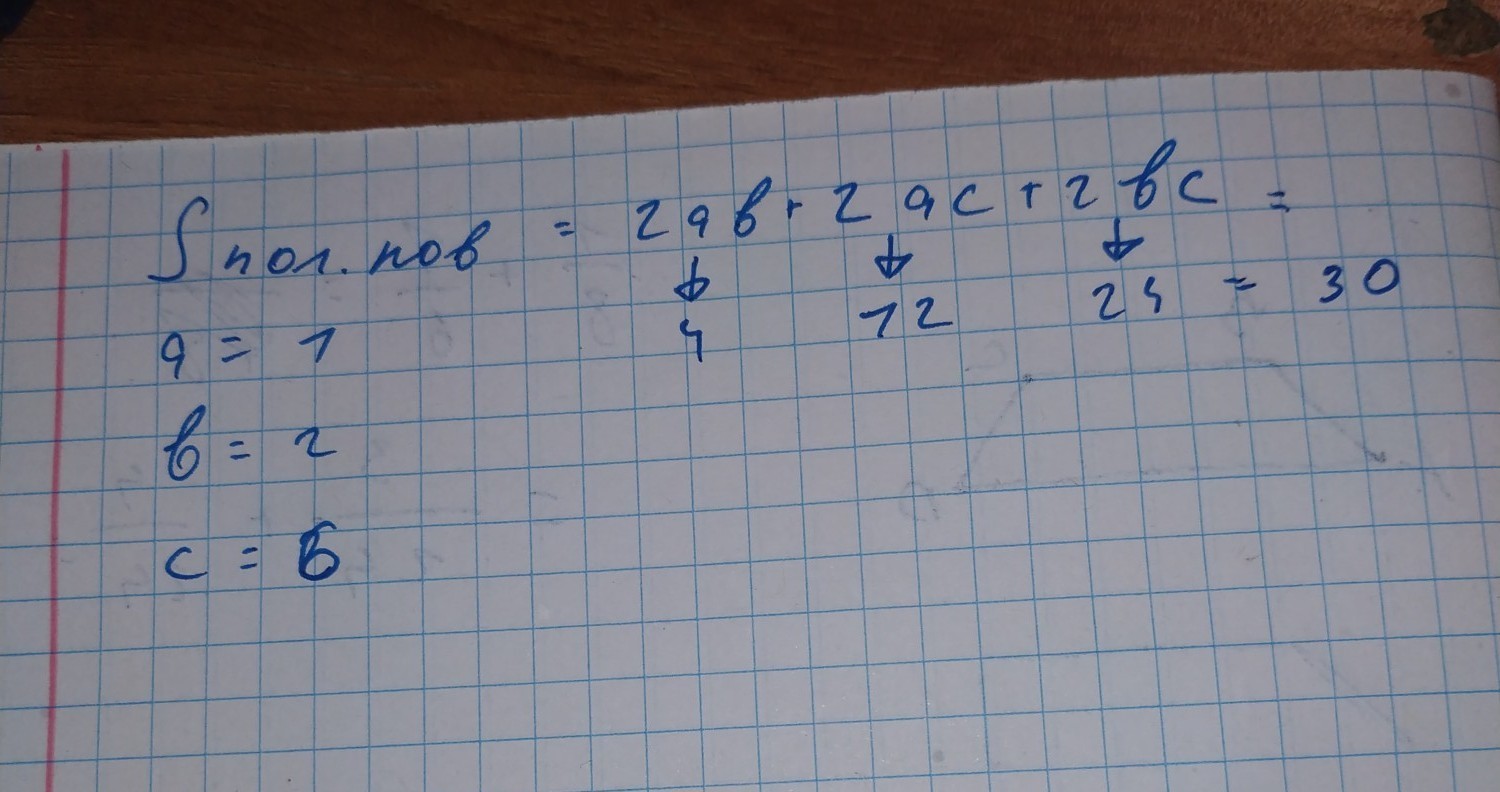 S пол. пов = 2ab + 2ac + 2bc =
↓ ↓ ↓
4 12 24 = 30
a = 1
b = 2
c = 6